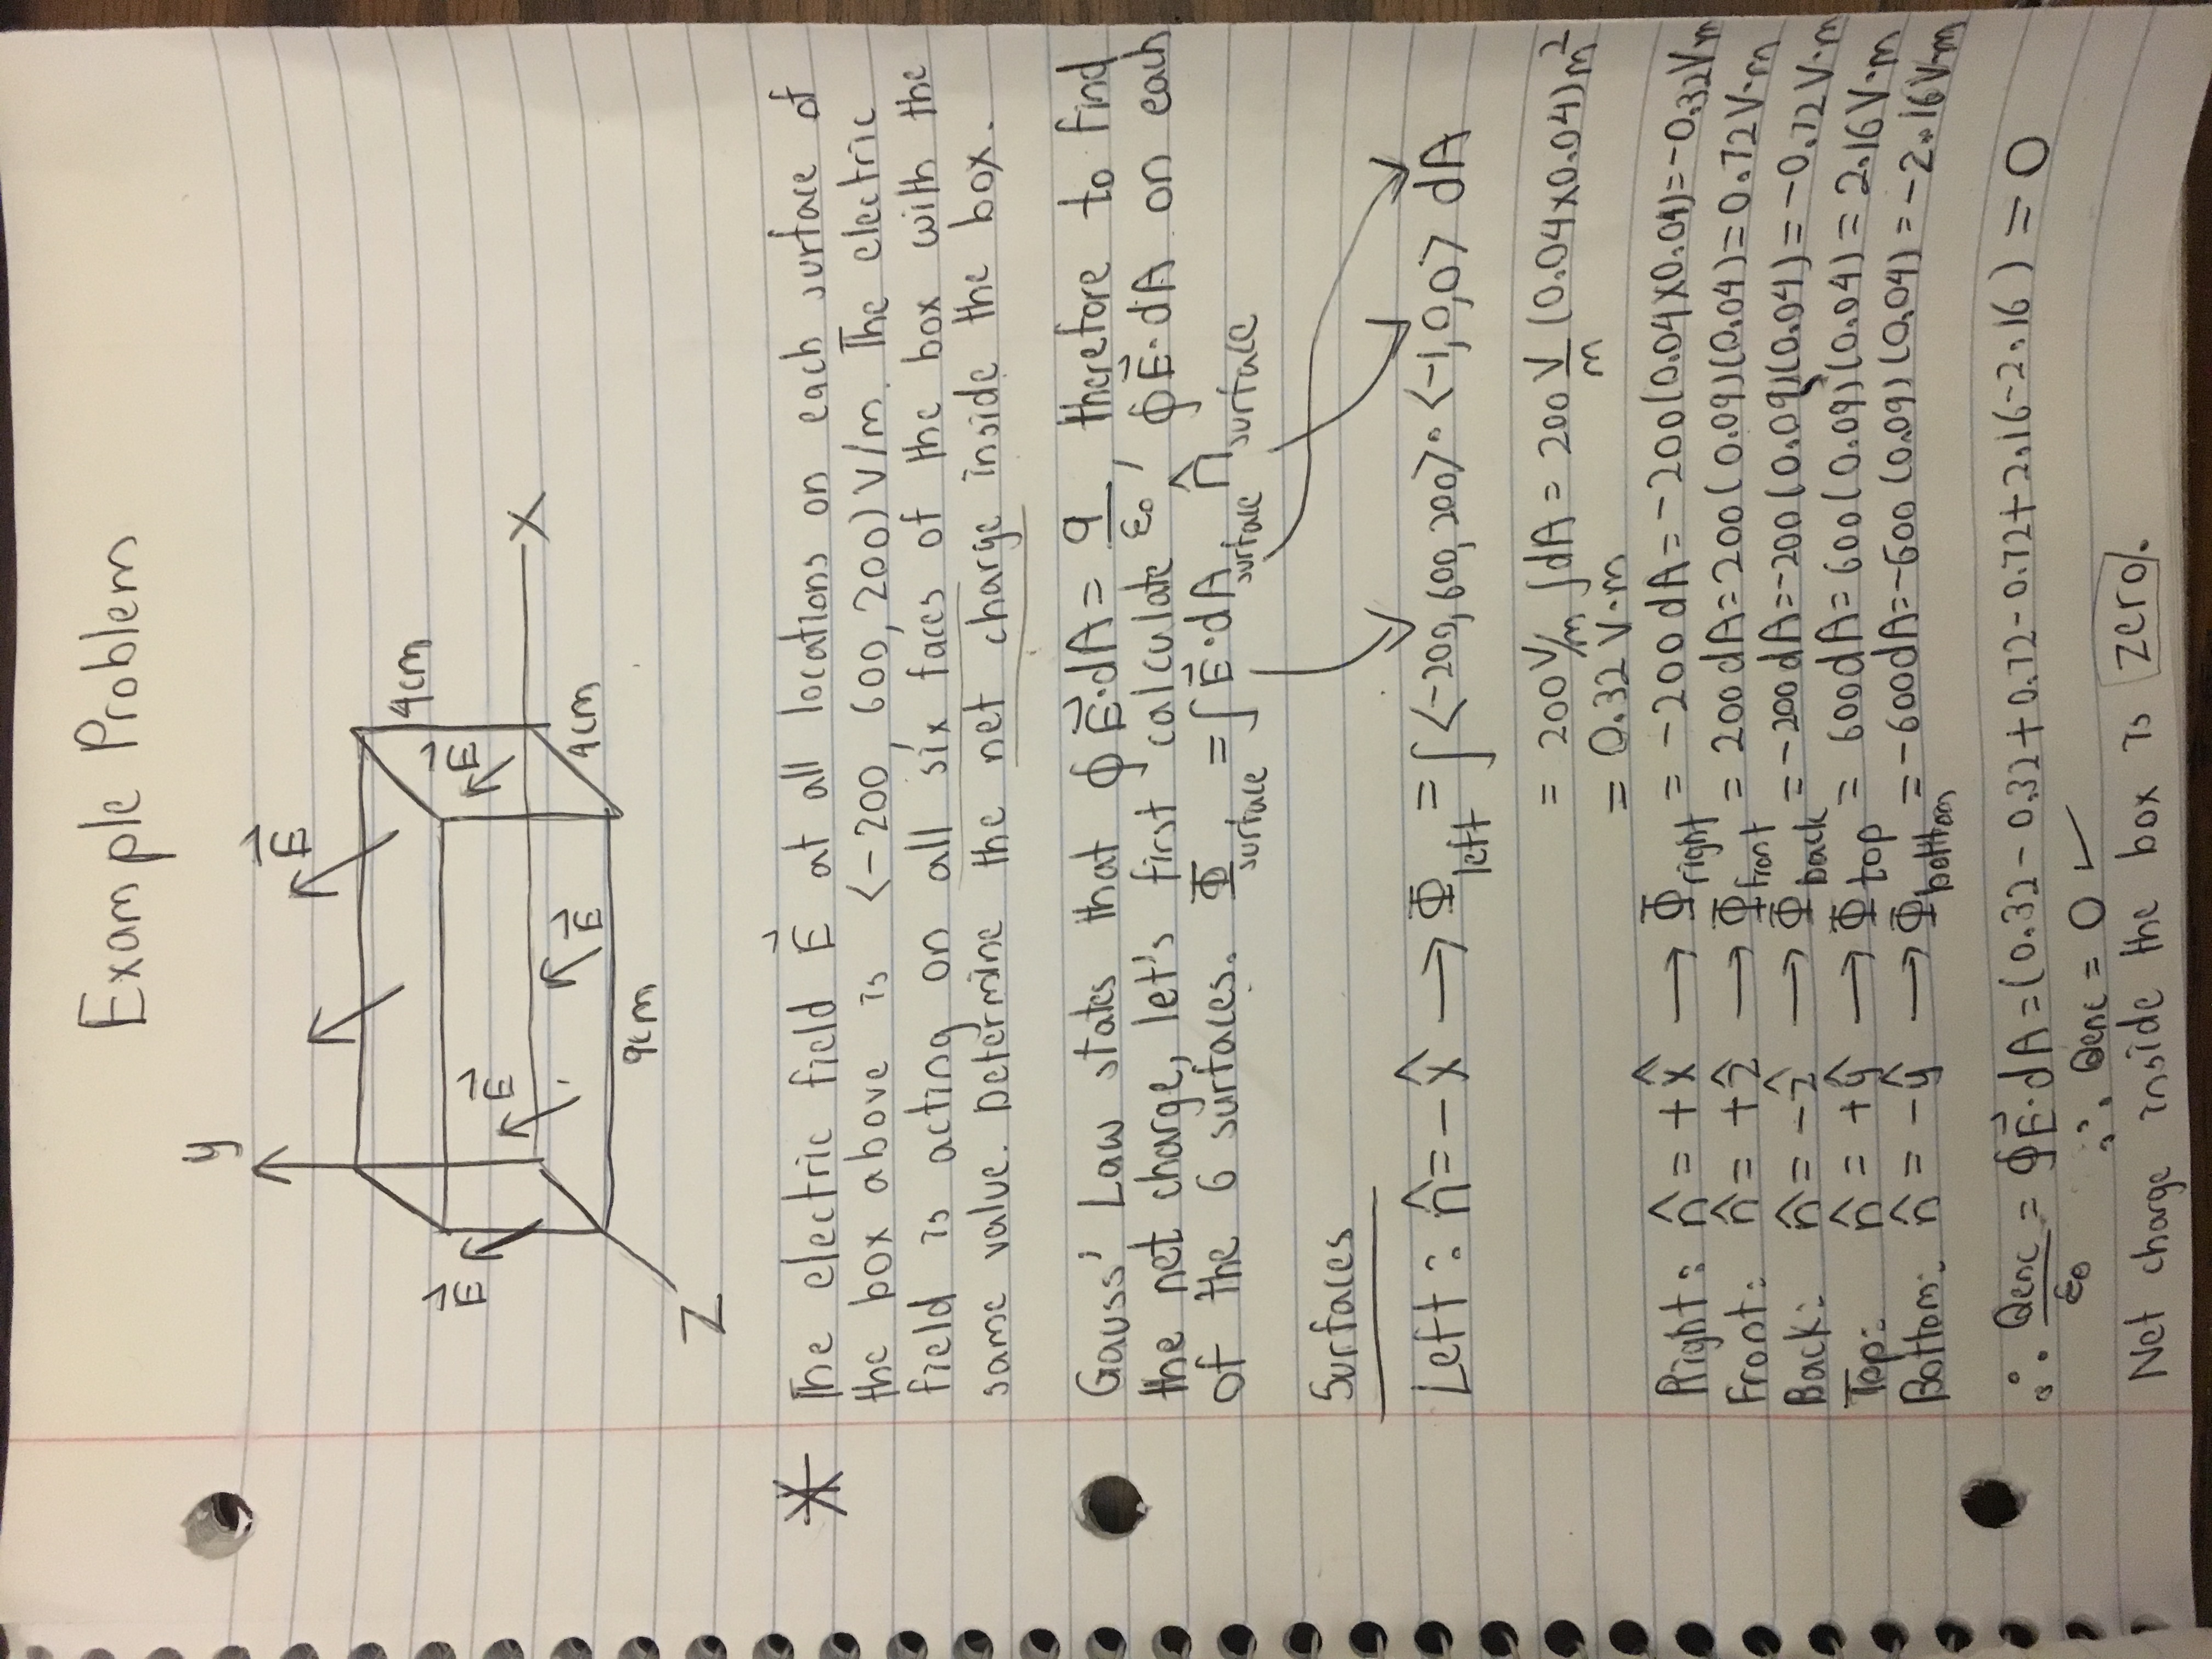 Example Problem
y
E⃗
E⃗
4cm
E⃗
E⃗
X
E⃗
4cm
9cm
Z
* The electric field E⃗ at all locations on each surface of
the box above is <-200, 600, 200> V/m. The electric
field is acting on all six faces of the box with the
same value. Determine the net charge inside the box.
Gauss' Law states that ∮E⃗·dA = q/ε₀, therefore to find
the net charge, let's first calculate ∮E⃗·dA on each
of the 6 surfaces. Φsurface = ∫E⃗·dAsurface n̂surface
Surfaces
Left: n̂ = -x̂ → Φleft = ∫<-200, 600, 200>·<-1,0,0> dA
= 200 V/m ∫dA = 200 V/m (0.04×0.04)m²
= 0.32 V·m
Right: n̂ = +x̂ → Φright = -200dA = -200(0.04×0.04) = -0.32Vm
Front: n̂ = +ẑ → Φfront = 200dA = 200(0.09)(0.04) = 0.72V·m
Back: n̂ = -ẑ → Φback = -200dA = -200(0.09)(0.04) = -0.72V·m
Top: n̂ = +ŷ → Φtop = 600dA = 600(0.09)(0.04) = 2.16V·m
Bottom: n̂ = -ŷ → Φbottom = -600dA = -600(0.09)(0.04) = -2.16V·m
∴ Qenc/ε₀ = ∮E⃗·dA = (0.32 - 0.32 + 0.72 - 0.72 + 2.16 - 2.16) = 0
∴ Qenc = 0 ✓
Net charge inside the box is zero.